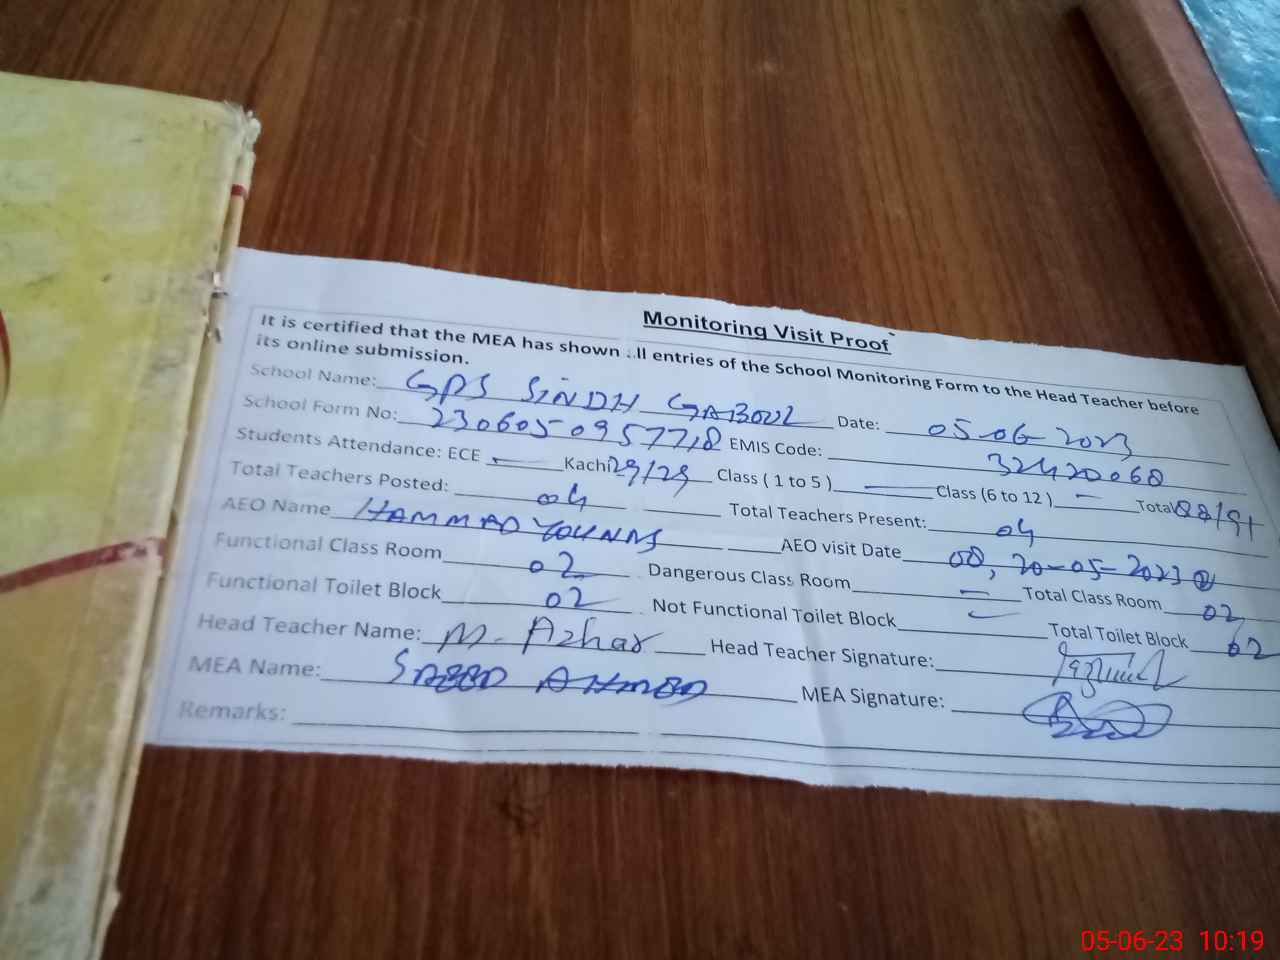 Monitoring Visit Proof
It is certified that the MEA has shown all entries of the School Monitoring Form to the Head Teacher before
its online submission.
School Name: GPS SINDH GABOUL Date: 05-06-2023
School Form No: 23060509577,8 EMIS Code: 32420068
Students Attendance: ECE — Kachi 29/29 Class ( 1 to 5 ) — Class (6 to 12 ) — Total 88/91
Total Teachers Posted: 04 Total Teachers Present: 04
AEO Name HAMMAD YOUNAS AEO visit Date 08, 20-05-2023
Functional Class Room 02 Dangerous Class Room — Total Class Room 02
Functional Toilet Block 02 Not Functional Toilet Block — Total Toilet Block 02
Head Teacher Name: M. Azhar Head Teacher Signature:
MEA Name: SAEED AHMED MEA Signature:
Remarks:
05-06-23 10:19